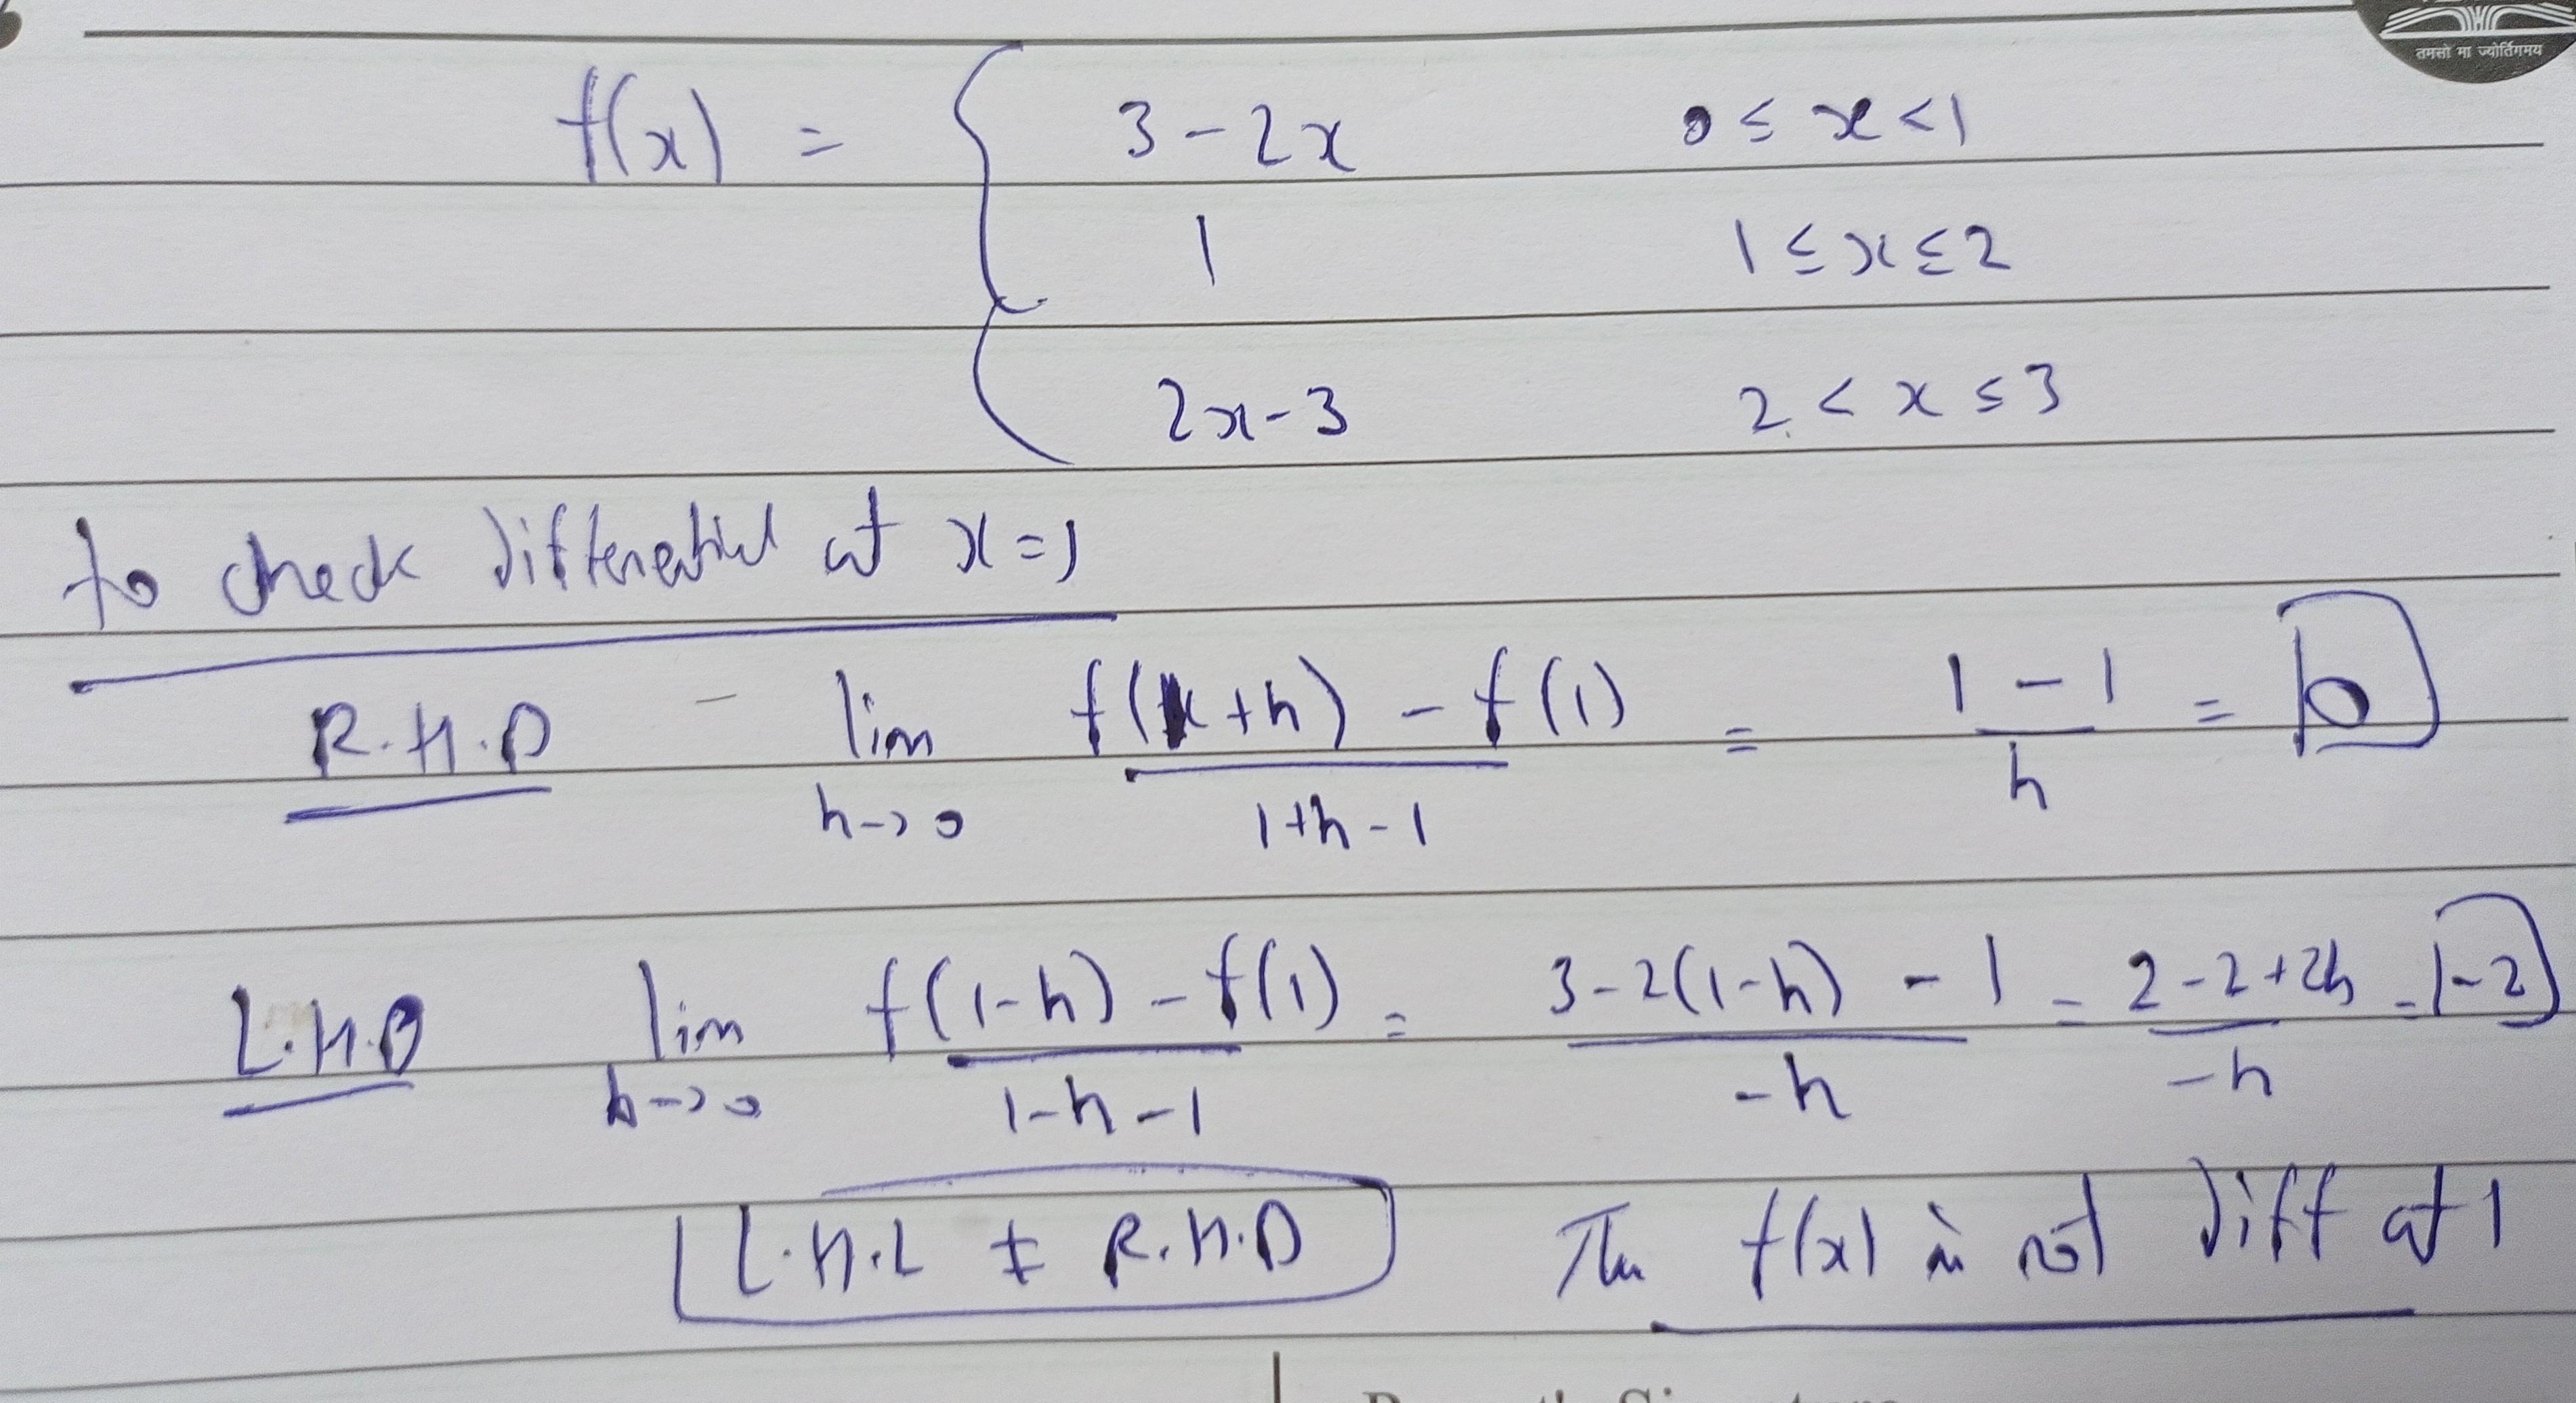 तमसो मा ज्योर्तिगमय
f(x) = { 3-2x 0 ≤ x < 1
1 1 ≤ x ≤ 2
2x-3 2 < x ≤ 3
to check differential at x=1
R.H.D - lim h->0 f(1+h) - f(1) / 1+h-1 = 1-1 / h = 0
L.H.D lim h->0 f(1-h) - f(1) / 1-h-1 = 3-2(1-h) - 1 / -h = 2-2+2h / -h = -2
L.H.L ≠ R.H.D The f(x) is not diff at 1